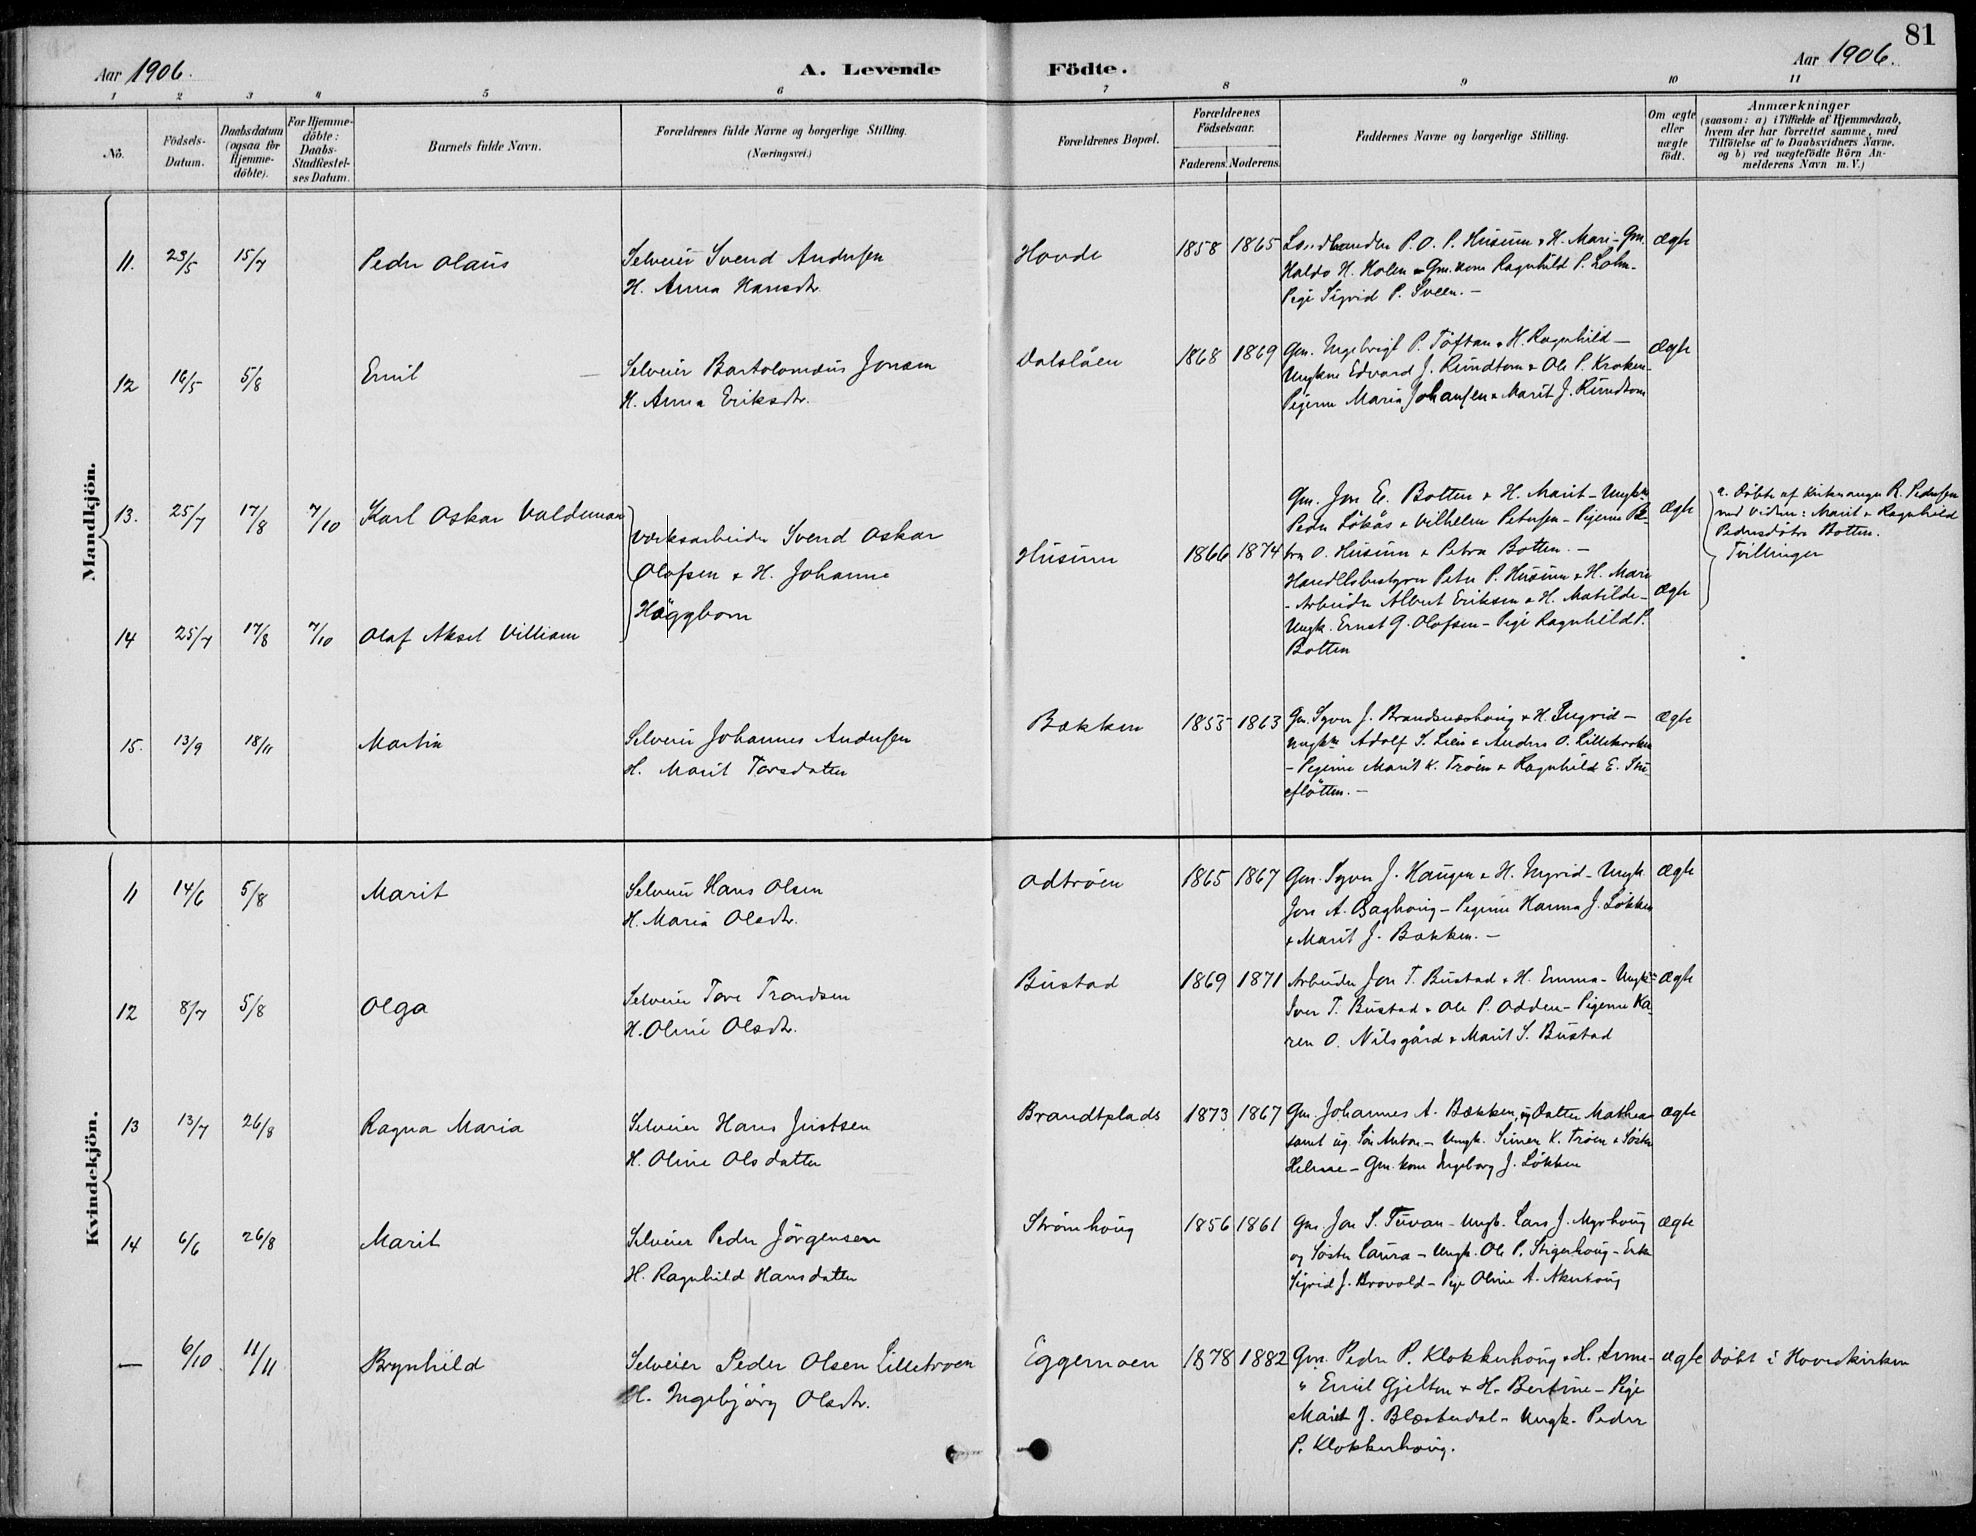 81
Aar 1906.
A. Levende Födte.
Aar 1906.
1 2 3 4 5 6 7 8 9 10 11
No.
Födsels-
Datum.
Daabsdatum
(ogsaa for
Hjemme-
döbte).
For Hjemme-
döbte:
Daabs-
Stadfæstel-
ses Datum.
Barnets fulde Navn.
Forældrenes fulde Navne og borgerlige Stilling.
(Næringsvei.)
Forældrenes Bopæl.
Forældrenes
Födselsaar.
Faderens. Moderens.
Faddernes Navne og borgerlige Stilling.
Om ægte
eller
uægte
födt.
Anmærkninger
(saasom: a) i Tilfælde af Hjemmedaab,
hvem der har forrettet samme, med
Tilföielse af to Daabsvidners Navne.
og b) ved uægtefödte Börn An-
melderens Navn m. V.)
Mandkjön.
11. 23/5 15/7 Peder Olaus
Selveier Svend Andersen
H. Anna Hansdtr.
Hovde 1858 1865
Landhandler P. O. P. Husum & H. Mari - Gm.
Haldo H. Holen & Gm. kone Ragnhild P. Lohn.
Pige Sigrid P. Sveen. -
Ægte
12 16/5 5/8 Emil
Selveier Bartolomæus Jonsen
H. Anna Eriksdtr.
Dalslåen 1868 1869
Gm. Ingebrigt P. Toftan & H. Ragnhild -
Ungkne Edvard J. Rundtom & Ole P. Kroken -
Pigerne Maria Johansen & Marit J. Rundtom
Ægte
13. 25/7 17/8 7/10 Karl Oskar Valdemar
Værksarbeider Svend Oskar
Olofsen & H. Johanne
Häggbom
Husum 1866 1874
Gm. Jon E. Botten & H. Marit - Ungkne
Peder Lökås & Vilhelm Petersen - Pigerne Pe-
tra O. Husum & Petra Botten. -
Handelsbestyrer Peter P. Husum & H. Mari
- Arbeider Albert Eriksen & H. Matilde -
Ungk. Ernst G. Olofsen - Pige Ragnhild P.
Botten
Ægte
Ægte
a. Döbte af Kirkesanger R. Pedersen
med Vidner: Marit & Ragnhild
Pedersdötre Botten.
Tvillinger
14 25/7 17/8 7/10 Olaf Aksel Villiam
15. 13/9 18/11 Martin
Selveier Johannes Andersen
H. Marit Torsdatter
Bakken 1855 1863
Gm. Syver J. Brandsnæshaug & H. Ingrid -
Ungkne Adolf S. Lien & Anders O. Lillekroken
- Pigerne Marit K. Tröen & Ragnhild E. Stu-
eflotten. -
Ægte
Kvindekjön.
11 14/6 5/8 Marit
Selveier Hans Olsen
H. Maria Olsdtr.
Odtröen 1865 1867
Gm. Syver J. Haugen & H. Ingrid - Ungk.
Jon A. Baghaug - Pigerne Hanna J. Løkken
& Marit J. Bakken. -
Ægte
12 8/7 5/8 Olga
Selveier Tore Trondsen
H. Oline Olsdtr.
Bustad 1869 1871
Arbeider Jon T. Bustad & H. Emma - Ungkne
Iver T. Bustad & Ole P. Odden - Pigerne Ka-
ren O. Nilsgård & Marit S. Bustad
Ægte
13 13/7 26/8 Ragna Maria
Selveier Hans Justsen
H. Oline Olsdatter
Brandtplads 1873 1867
Gm. Johannes A. Bækken, ug. Datter Mathea
samt ug. Sön Anton - Ungk. Simen K. Tröen & Söster
Helene - Gm. kone Ingeborg J. Løkken
Ægte
14 6/6 26/8 Marit
Selveier Peder Jörgensen
H. Ragnhild Hansdatter
Strömhaug 1856 1861
Gm. Jon S. Tuvan - Ungk. Lars J. Myrhaug
og Söster Laura - Ungk. Ole P. Stigerhaug - Enke
Sigrid J. Brovold - Pige Oline A. Akerhaug
Ægte
— 6/10 11/11 Brynhild
Selveier Peder Olsen Lilletroen
H. Ingebjörg Olsdtr.
Eggemoen 1878 1882
Gm. Peder P. Klokkerhaug & H. Anne -
" Emil Gjelten & H. Bertine - Pige
Marit J. Blæsterdal - Ungk. Peder
P. Klokkerhaug.
Ægte
Döbt i Hovedkirken